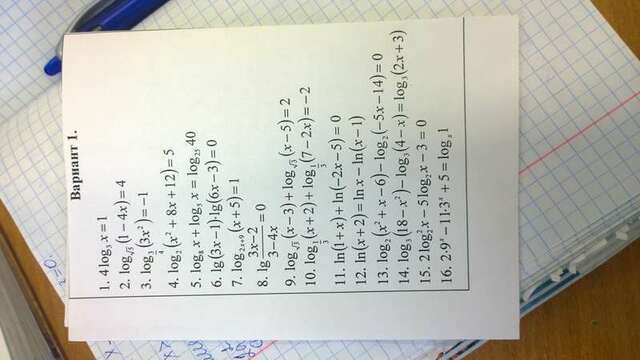 Вариант 1.
1. 4log₃x=1
2. log_{√3}(1−4x)=4
3. log_{3/4}(3x²)=−1
4. log₅(x²+8x+12)=5
5. log₈x+log₅x=log₂₅40
6. lg(3x−1)·lg(6x−3)=0
7. log_{2x+4}(x+5)=1
8. lg (3x−2)/(3−4x)=0
9. log_{√3}(x−3)+log_{√3}(x−5)=2
10. log_{1/3}(x+2)+log_{1/3}(7−2x)=−2
11. ln(1+x)+ln(−2x−5)=0
12. ln(x+2)=ln x−ln(x−1)
13. log₂(x²+x−6)−log₂(−5x−14)=0
14. log₃(18−x²)−log₃(4−x)=log₃(2x+3)
15. 2log₂²x−5log₂x−3=0
16. 2·9ˣ−11·3ˣ+5=logₓ1